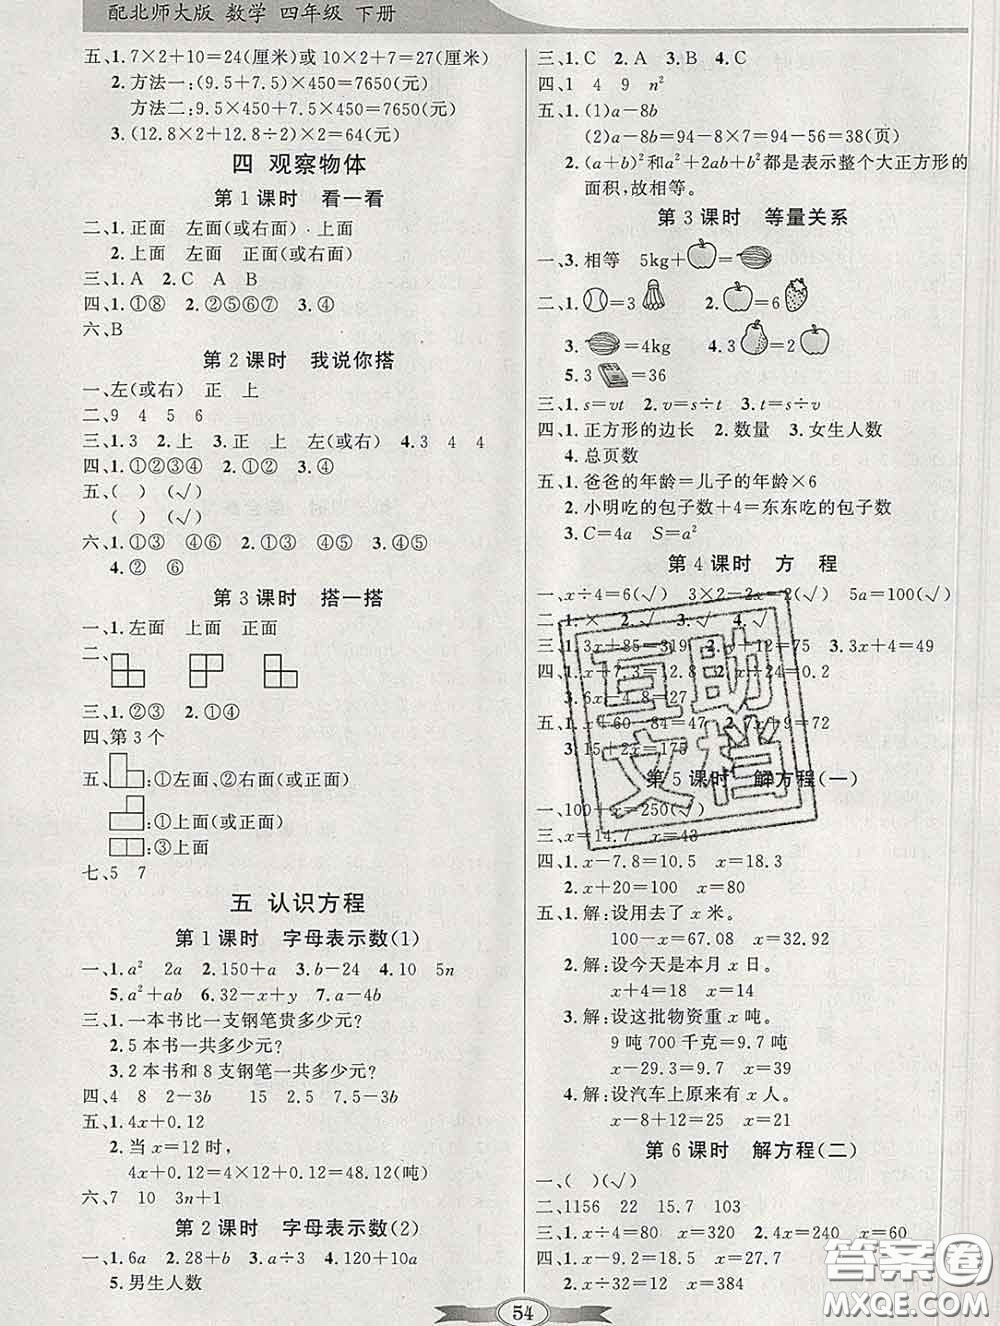 配北师大版 数学 四年级 下册
五、1.7×2+10=24(厘米)或10×2+7=27(厘米)
2.方法一:(9.5+7.5)×450=7650(元)
方法二:9.5×450+7.5×450=7650(元)
3.(12.8×2+12.8÷2)×2=64(元)
四 观察物体
第1课时 看一看
二、1.正面 左面(或右面) 上面
2.上面 左面 正面(或右面)
三、1.A 2.C A B
四、1.①⑧ 2.②⑤⑥⑦ 3.④
六、B
第2课时 我说你搭
一、左(或右) 正 上
二、9 4 5 6
三、1.3 2.上 3.正 上 左(或右) 4.3 4 4
四、1.①②③④ 2.①② 3.④
五、( ) (√)
( ) (√)
六、1.①③ ④⑥ 2.①③ ④⑤ 3.④⑤
4.② ⑥
第3课时 搭一搭
一、1.左面 上面 正面
二、
三、1.②③ 2.①④
四、第3个
五、:①左面、②右面(或正面)
:①上面(或正面)
:③上面
七、5 7
五 认识方程
第1课时 字母表示数(1)
一、1.a² 2a 2.150+a 3.b−24 4.10 5n
5.a²+ab 6.32−x+y 7.a−4b
三、1.一本书比一支钢笔贵多少元?
2.5本书一共多少元?
3.2本书和8支钢笔一共多少元?
四、4 8 2−3b 15 2.5 7.5−3b
五、1.4x+0.12
2.当x=12时,
4x+0.12=4×12+0.12=48.12(吨)
六、7 10 3n+1
第2课时 字母表示数(2)
一、1.6a 2.28+b 3.a÷3 4.120+10a
5.男生人数
三、1.C 2.A 3.B 4.C
四、1 4 9 n²
五、1.(1)a−8b
(2)a−8b=94−8×7=94−56=38(页)
2.(a+b)²和a²+2ab+b²都是表示整个大正方形的
面积,故相等。
第3课时 等量关系
一、3.相等 5kg+=
二、1.=3 2.=6
3.=4kg 4.3=2
5.3=36
三、1.s=vt 2.v=s÷t 3.t=s÷v
四、1.正方形的边长 2.数量 3.女生人数
4.总页数
五、1.爸爸的年龄=儿子的年龄×6
2.小明吃的包子数+4=东东吃的包子数
3.C=4a S=a²
第4课时 方 程
一、x÷4=6(√) 3×2−2x=2(√) 5a=100(√)
二、1.× 2.√ 3.√ 4.√
三、1.3x+85=319 2.x+12=75 3.x+4=49
四、1.x+7.3=12.8 2.x÷24=0.2
3.6x−4.8=27
五、1.x+60−84=47 2.7x+9=72
3.15+2x=175
第5课时 解方程(一)
一、100+x=250(√)
三、x=14.7 x=43
四、1.x−7.8=10.5 x=18.3
2.x+20=100 x=80
五、1.解:设用去了x米。
100−x=67.08 x=32.92
2.解:设今天是本月x日。
x+4=18 x=14
3.解:设这批物资重x吨。
9吨700千克=9.7吨
x−29.3=9.7 x=39
4.解:设汽车上原来有x人。
x−8+12=25 x=21
第6课时 解方程(二)
一、( )(√)
二、1156 22 15.7 103
三、1.x÷4=80 x=320 2.4x=240 x=60
四、1.x−9.2=18.5 x=27.7
2.x÷32=12 x=384
54
互助
文档
答案圈
MXQE.COM